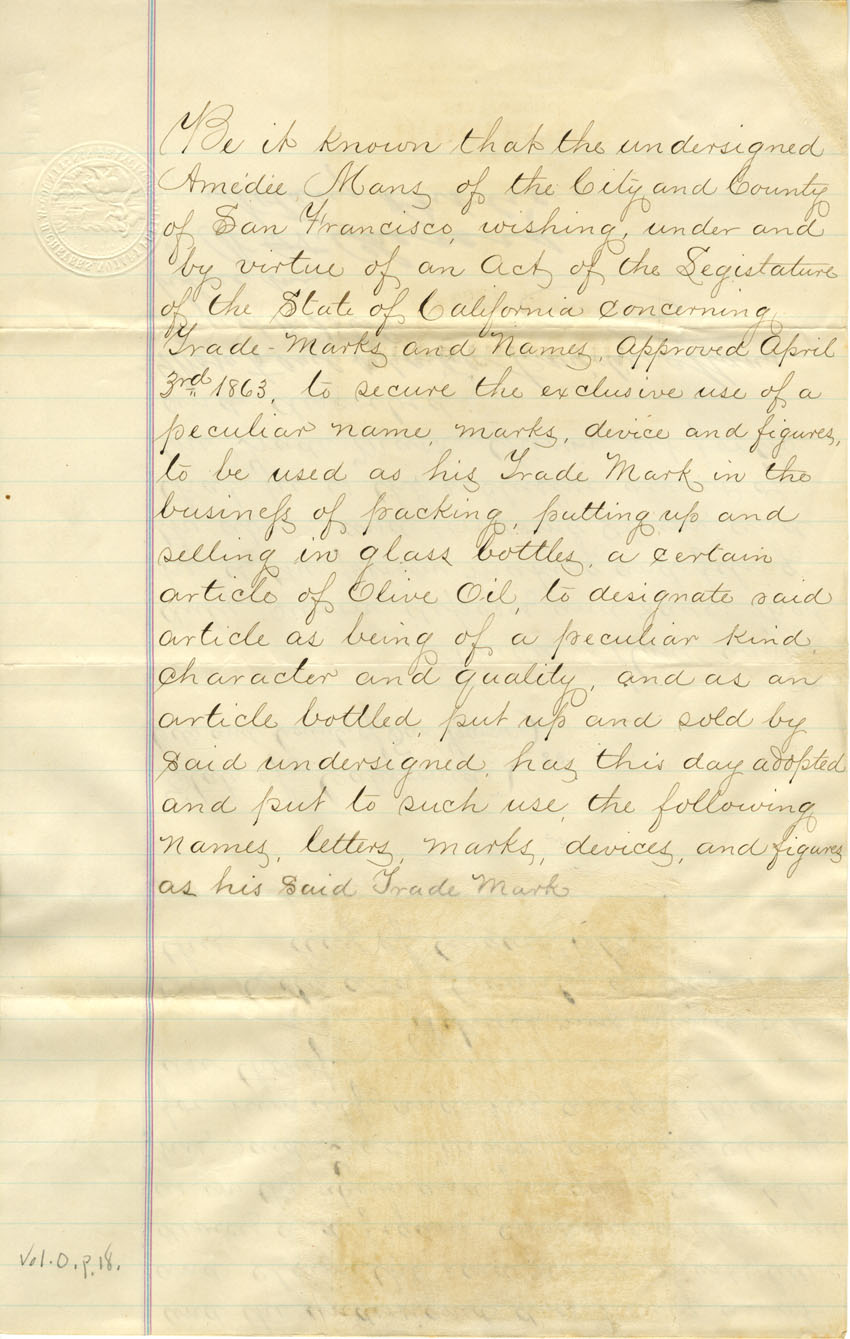 Be it known that the undersigned
Amédée Mans, of the City and County
of San Francisco, wishing, under and
by virtue of an Act of the Legistature
of the State of California concerning
Trade-Marks and Names, Approved April
3rd 1863, to secure the exclusive use of a
peculiar name, marks, device and figures,
to be used as his Trade Mark in the
business of packing, putting up and
selling in glass bottles, a certain
article of Olive Oil, to designate said
article as being of a peculiar kind,
character and quality, and as an
article bottled, put up and sold by
said undersigned, has this day adopted
and put to such use, the following
names, letters, marks, devices, and figures
as his said Trade Mark
Vol. O. p. 18.